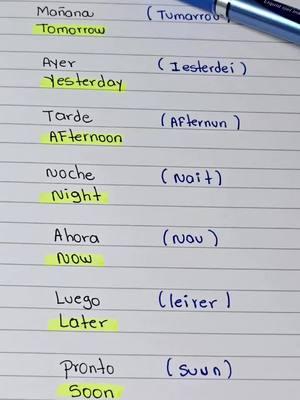 Mañana (Tumarrou
Tomorrow
Ayer (Iesterdei)
Yesterday
Tarde (Afternun)
Afternoon
Noche (Nait)
Night
Ahora (Nau)
Now
Luego (leirer)
Later
Pronto (suun)
Soon